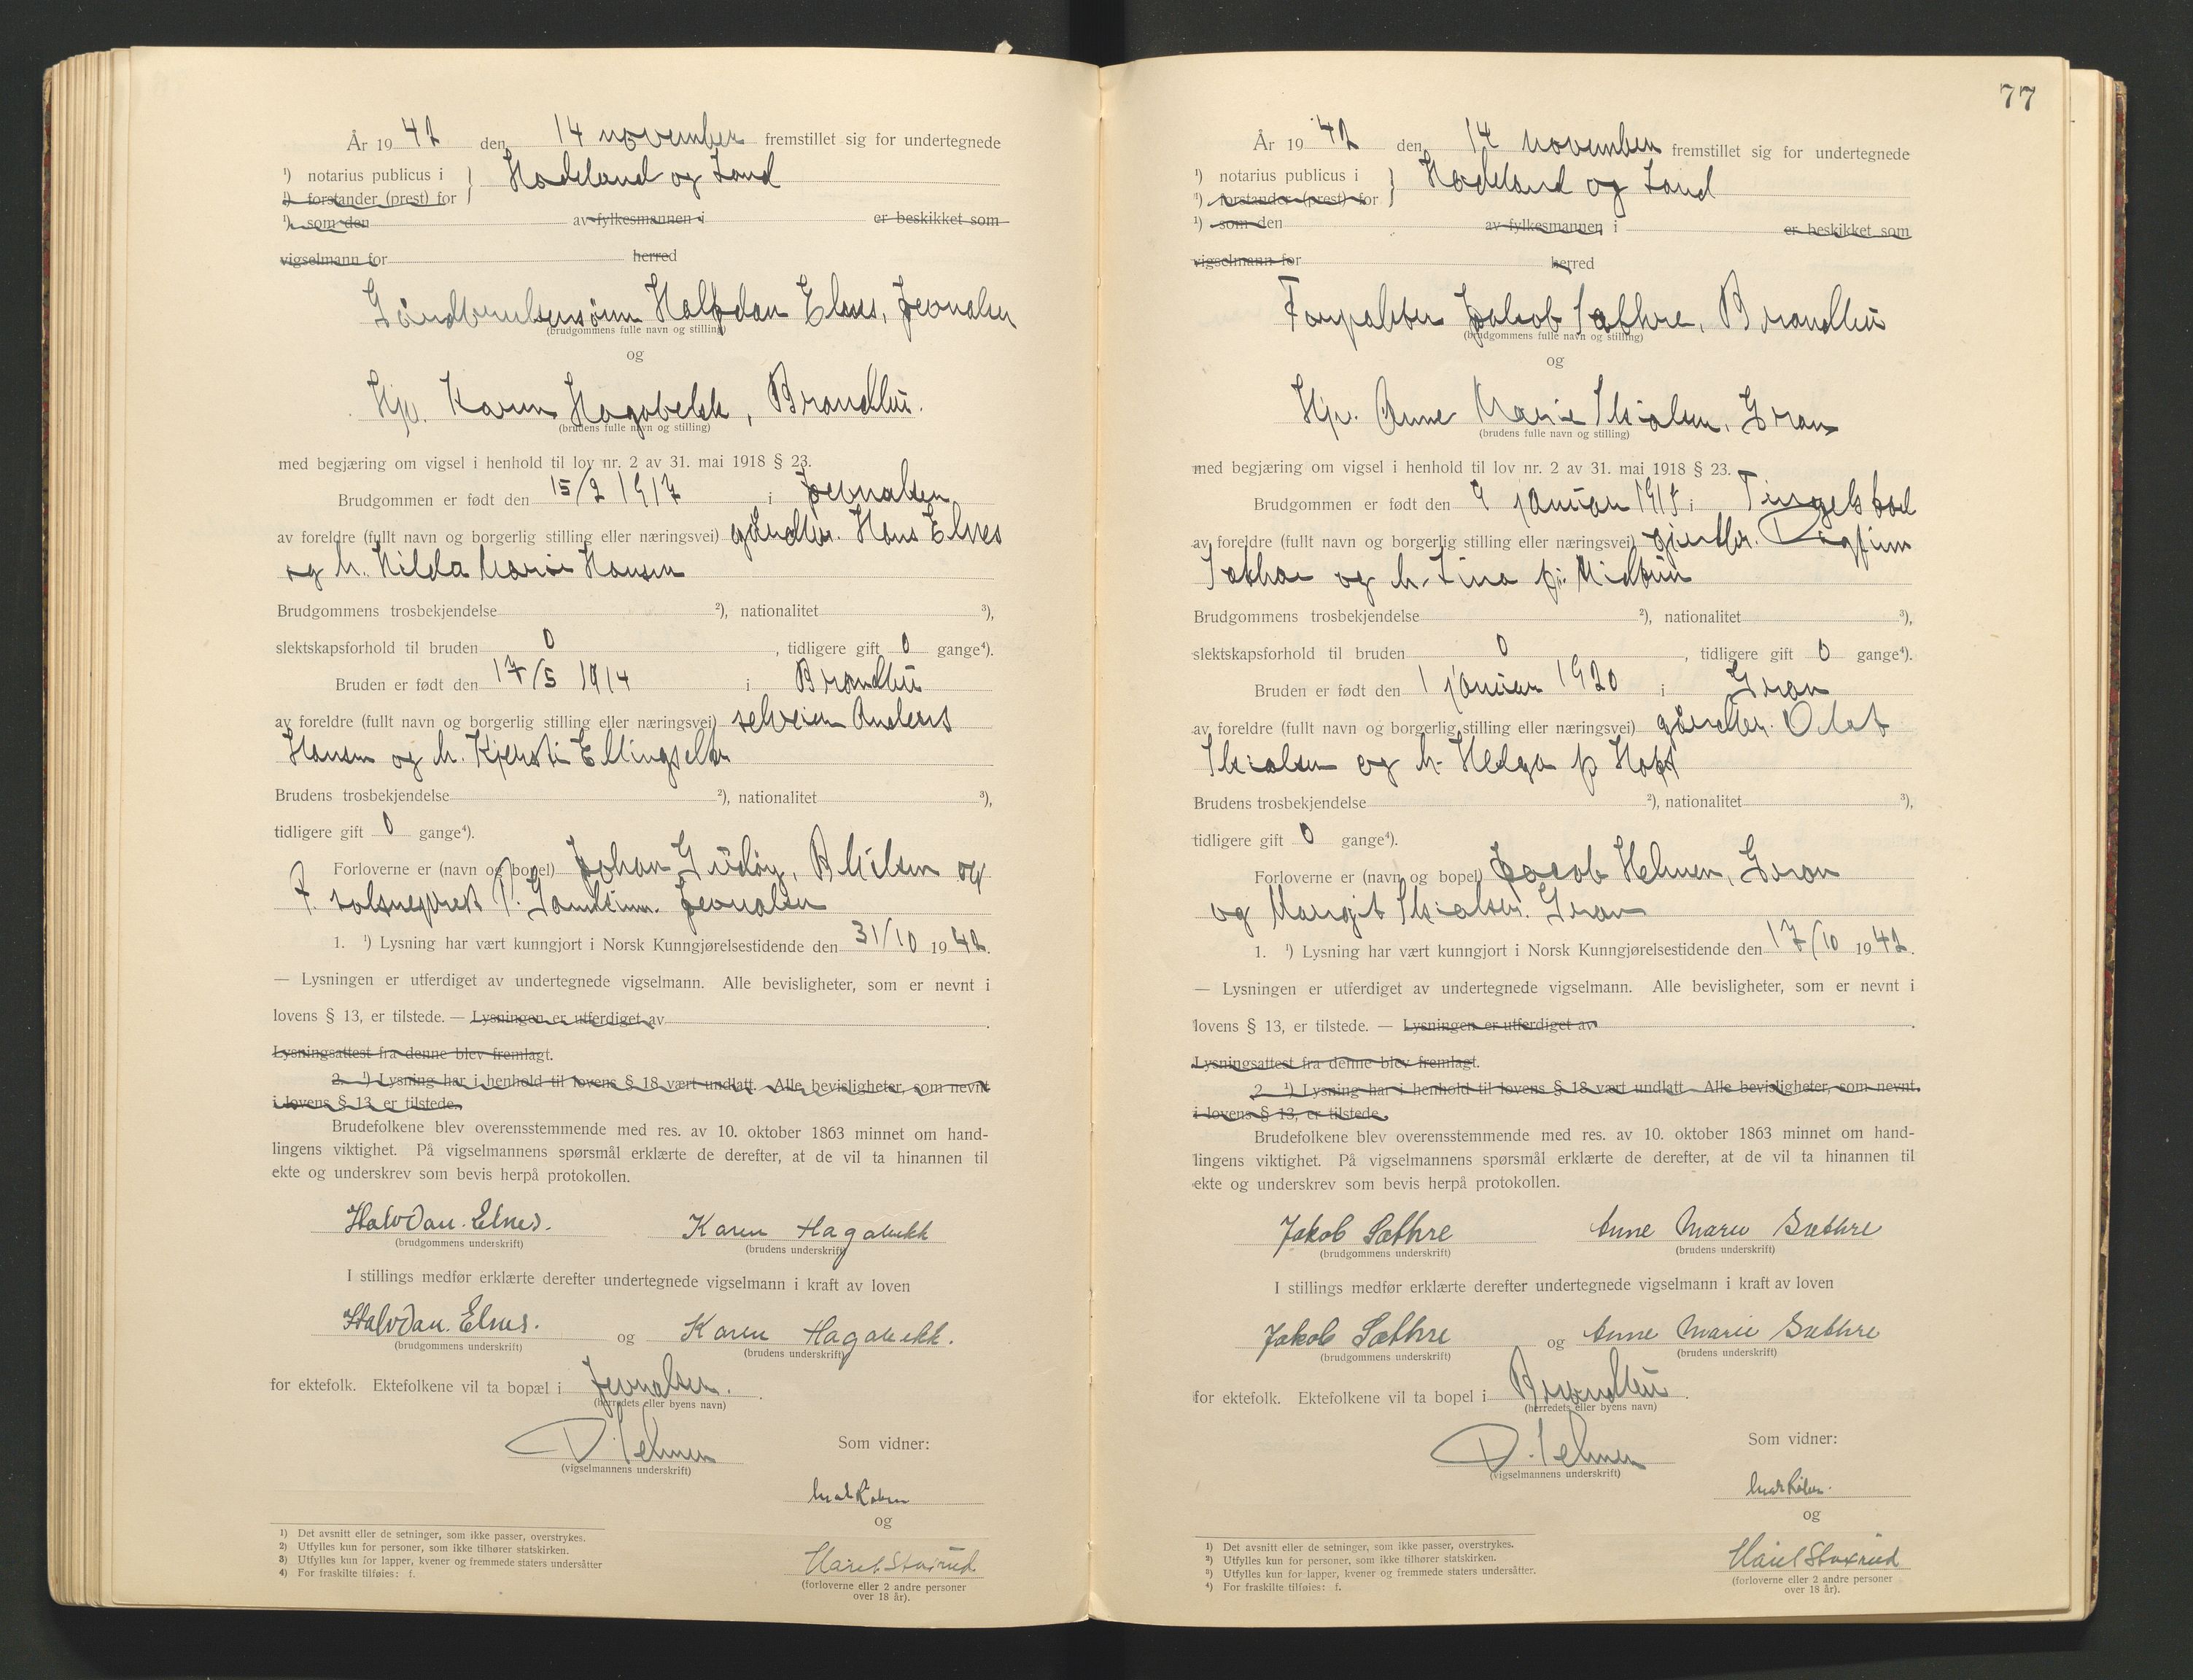 År 19 42 den 14 november fremstillet sig for undertegnede
¹) notarius publicus i } Hadeland og Land
¹) forstander (prest) for
¹) som den av fylkesmannen i er beskikket som
vigselmann for herred
Halvdan Elnes, Jevnaker
(brudgommens fulle navn og stilling)
og
Hjv. Karen Hagabekk, Brandbu.
(brudens fulle navn og stilling)
med begjæring om vigsel i henhold til lov nr. 2 av 31. mai 1918 § 23.
Brudgommen er født den 15/2 1917 i Jevnaker
av foreldre (fullt navn og borgerlig stilling eller næringsvei) gårdbr. Hans Elnes
og h. Hilda Marie Hansen
Brudgommens trosbekjendelse ²), nationalitet ³),
slektskapsforhold til bruden 0, tidligere gift 0 gange⁴).
Bruden er født den 17/5 1914 i Brandbu
av foreldre (fullt navn og borgerlig stilling eller næringsvei) selveier Anders
Hansen og h. Kjersti Ellingsdtr
Brudens trosbekjendelse ²), nationalitet ³),
tidligere gift 0 gange⁴).
Forloverne er (navn og bopel) Johan og
f. sokneprest Jevnaker
1. ¹) Lysning har vært kunngjort i Norsk Kunngjørelsestidende den 31/10 1942.
— Lysningen er utferdiget av undertegnede vigselmann. Alle bevisligheter, som er nevnt i
lovens § 13, er tilstede. — Lysningen er utferdiget av
Lysningsattest fra denne blev fremlagt.
2. ¹) Lysning har i henhold til lovens § 18 vært undlatt. Alle bevisligheter, som nevnt
i lovens § 13 er tilstede.
Brudefolkene blev overensstemmende med res. av 10. oktober 1863 minnet om hand-
lingens viktighet. På vigselmannens spørsmål erklærte de derefter, at de vil ta hinannen til
ekte og underskrev som bevis herpå protokollen.
Halvdan Elnes. Karen Hagabekk
(brudgommens underskrift) (brudens underskrift)
I stillings medfør erklærte derefter undertegnede vigselmann i kraft av loven
Halvdan Elnes. og Karen Hagabekk.
(brudgommens underskrift) (brudens underskrift)
for ektefolk. Ektefolkene vil ta bopæl i Jevnaker.
(herredets eller byens navn)
(vigselmannens underskrift)
Som vidner:
og
(forloverne eller 2 andre personer
over 18 år).
1) Det avsnitt eller de setninger, som ikke passer, overstrykes.
2) Utfylles kun for personer, som ikke tilhører statskirken.
3) Utfylles kun for lapper, kvener og fremmede staters undersåtter
4) For fraskilte tilføies: f.
77
År 19 42 den 14 november fremstillet sig for undertegnede
¹) notarius publicus i } Hadeland og Land
¹) forstander (prest) for
¹) som den av fylkesmannen i er beskikket som
vigselmann for herred
Forpakter Jakob Sæthre, Brandbu
(brudgommens fulle navn og stilling)
og
Hjv. Anne Marie Skiaker, Gran
(brudens fulle navn og stilling)
med begjæring om vigsel i henhold til lov nr. 2 av 31. mai 1918 § 23.
Brudgommen er født den 9 januar i Tingelstad
av foreldre (fullt navn og borgerlig stilling eller næringsvei) Dagfinn
Sæthre og h. Lina f.
Brudgommens trosbekjendelse ²), nationalitet ³),
slektskapsforhold til bruden 0, tidligere gift 0 gange⁴).
Bruden er født den 1 januar 1920 i Gran
av foreldre (fullt navn og borgerlig stilling eller næringsvei) gårdbr. Olaf
Skiaker og h. Helga f.
Brudens trosbekjendelse ²), nationalitet ³),
tidligere gift 0 gange⁴).
Forloverne er (navn og bopel) Jacob Helmen, Gran
og Margit Skiaker. Gran
1. ¹) Lysning har vært kunngjort i Norsk Kunngjørelsestidende den 17/10 1942.
— Lysningen er utferdiget av undertegnede vigselmann. Alle bevisligheter, som er nevnt i
lovens § 13, er tilstede. — Lysningen er utferdiget av
Lysningsattest fra denne blev fremlagt.
2 ¹) Lysning har i henhold til lovens § 18 vært undlatt Alle bevisligheter, som nevnt
i lovens § 13, er tilstede.
Brudefolkene blev overensstemmende med res. av 10. oktober 1863 minnet om hand-
lingens viktighet. På vigselmannens spørsmål erklærte de derefter, at de vil ta hinannen til
ekte og underskrev som bevis herpå protokollen.
Jakob Sæthre Anne Marie Sæthre
(brudgommens underskrift) (brudens underskrift)
I stillings medfør erklærte derefter undertegnede vigselmann i kraft av loven
Jakob Sæthre og Anne Marie Sæthre
(brudgommens underskrift) (brudens underskrift)
for ektefolk. Ektefolkene vil ta bopel i Brandbu.
(herredets eller byens navn)
(vigselmannens underskrift)
Som vidner:
og
(forloverne eller 2 andre personer
over 18 år).
1) Det avsnitt eller de setninger, som ikke passer, overstrykes.
²) Utfylles kun for personer, som ikke tilhører statskirken.
³) Utfylles kun for lapper, kvener og fremmede staters undersåtter.
⁴) For fraskilte tilføies: f.